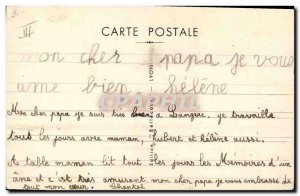 CARTE POSTALE
mon cher papa je vous
aime bien hélène
Mon cher papa je suis très bien à Langeac, je travaille
tous les jours avec maman, hubert et Hélène aussi.
A table maman lit tout les jours les Mémoires d'un
âne et c'est très amusant. mon cher papa je vous embrasse de
tout mon cœur. Chantal
LYON